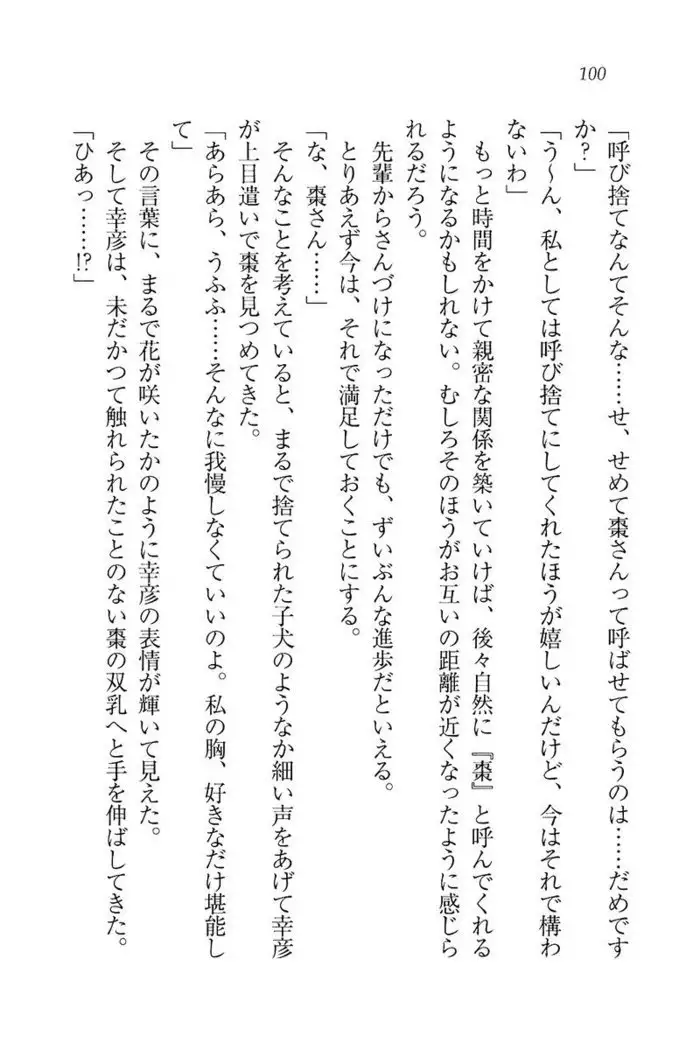 100
「呼び捨てなんてそんな……せ、せめて棗さんって呼ばせてもらうのは……だめです
か？」
「う～ん、私としては呼び捨てにしてくれたほうが嬉しいんだけど、今はそれで構わ
ないわ」
もっと時間をかけて親密な関係を築いていけば、後々自然に『棗』と呼んでくれる
ようになるかもしれない。むしろそのほうがお互いの距離が近くなったように感じら
れるだろう。
先輩からさんづけになっただけでも、ずいぶんな進歩だといえる。
とりあえず今は、それで満足しておくことにする。
「な、棗さん……」
そんなことを考えていると、まるで捨てられた子犬のようなか細い声をあげて幸彦
が上目遣いで棗を見つめてきた。
「あらあら、うふふ……そんなに我慢しなくていいのよ。私の胸、好きなだけ堪能し
て」
その言葉に、まるで花が咲いたかのように幸彦の表情が輝いて見えた。
そして幸彦は、未だかつて触れられたことのない棗の双乳へと手を伸ばしてきた。
「ひあっ……!?」